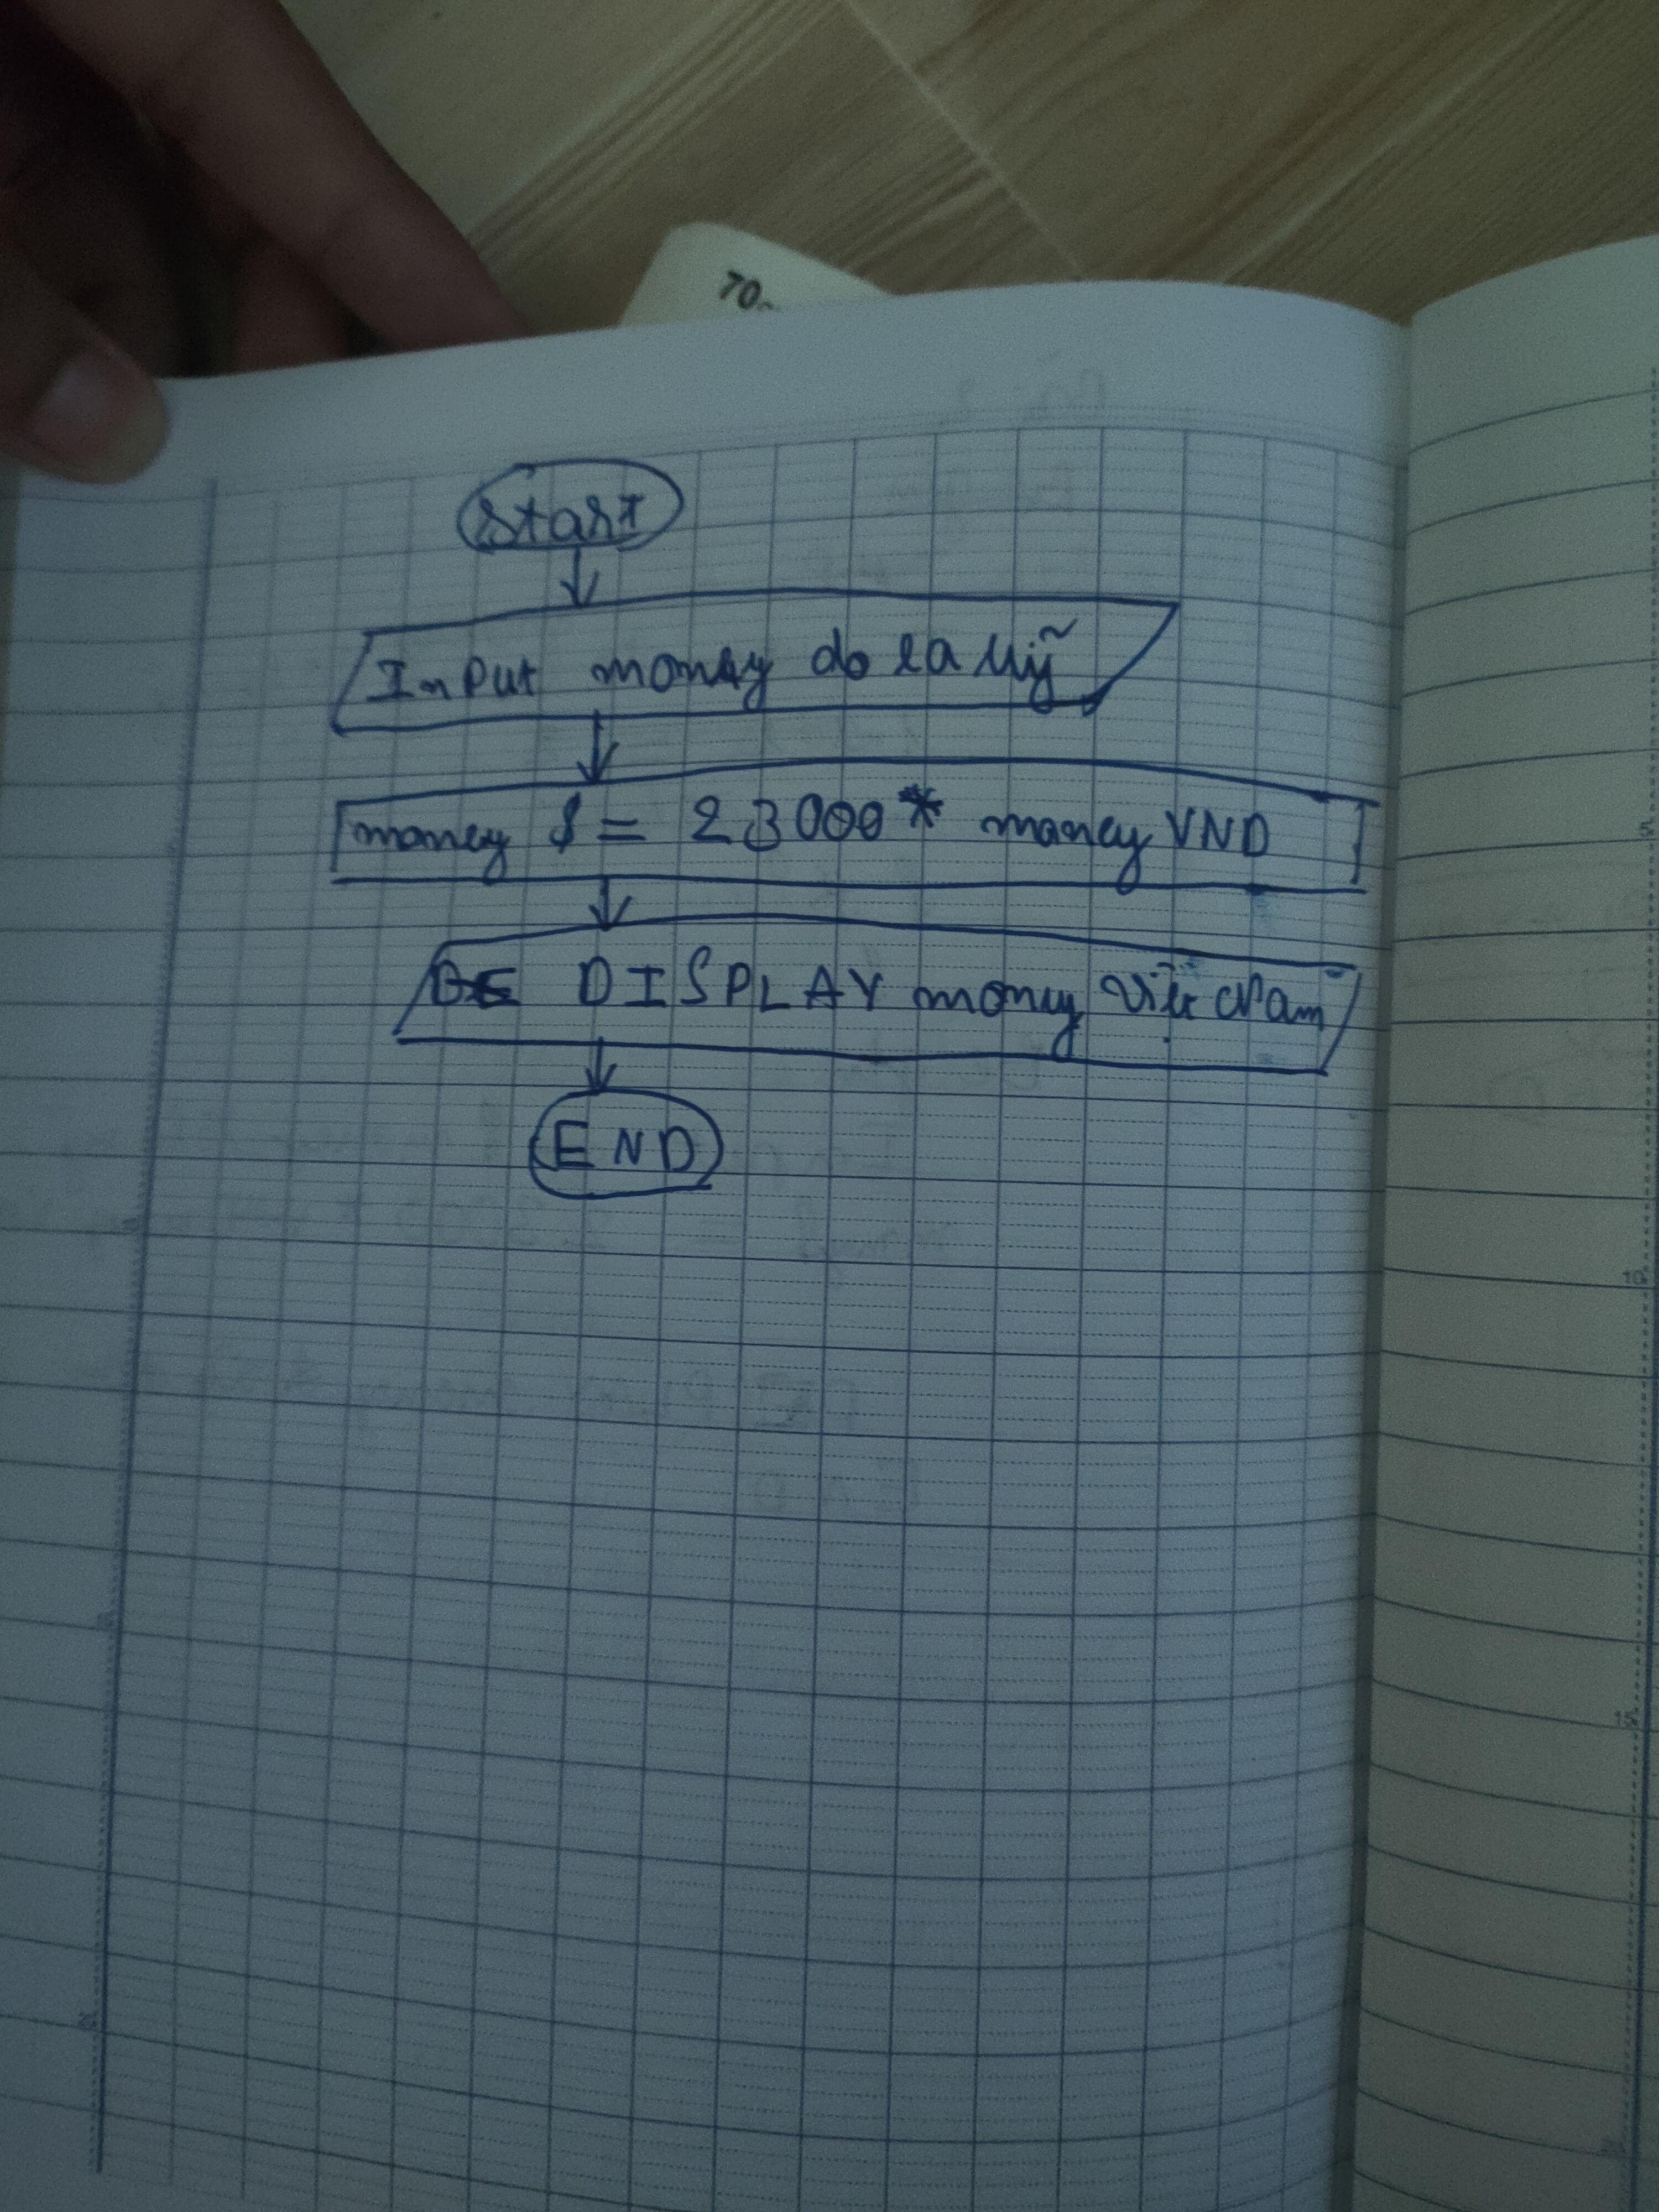 70
start
Input money do la Mỹ
money $ = 23000 * money VND
DISPLAY money Việt Nam
END
5
10
15